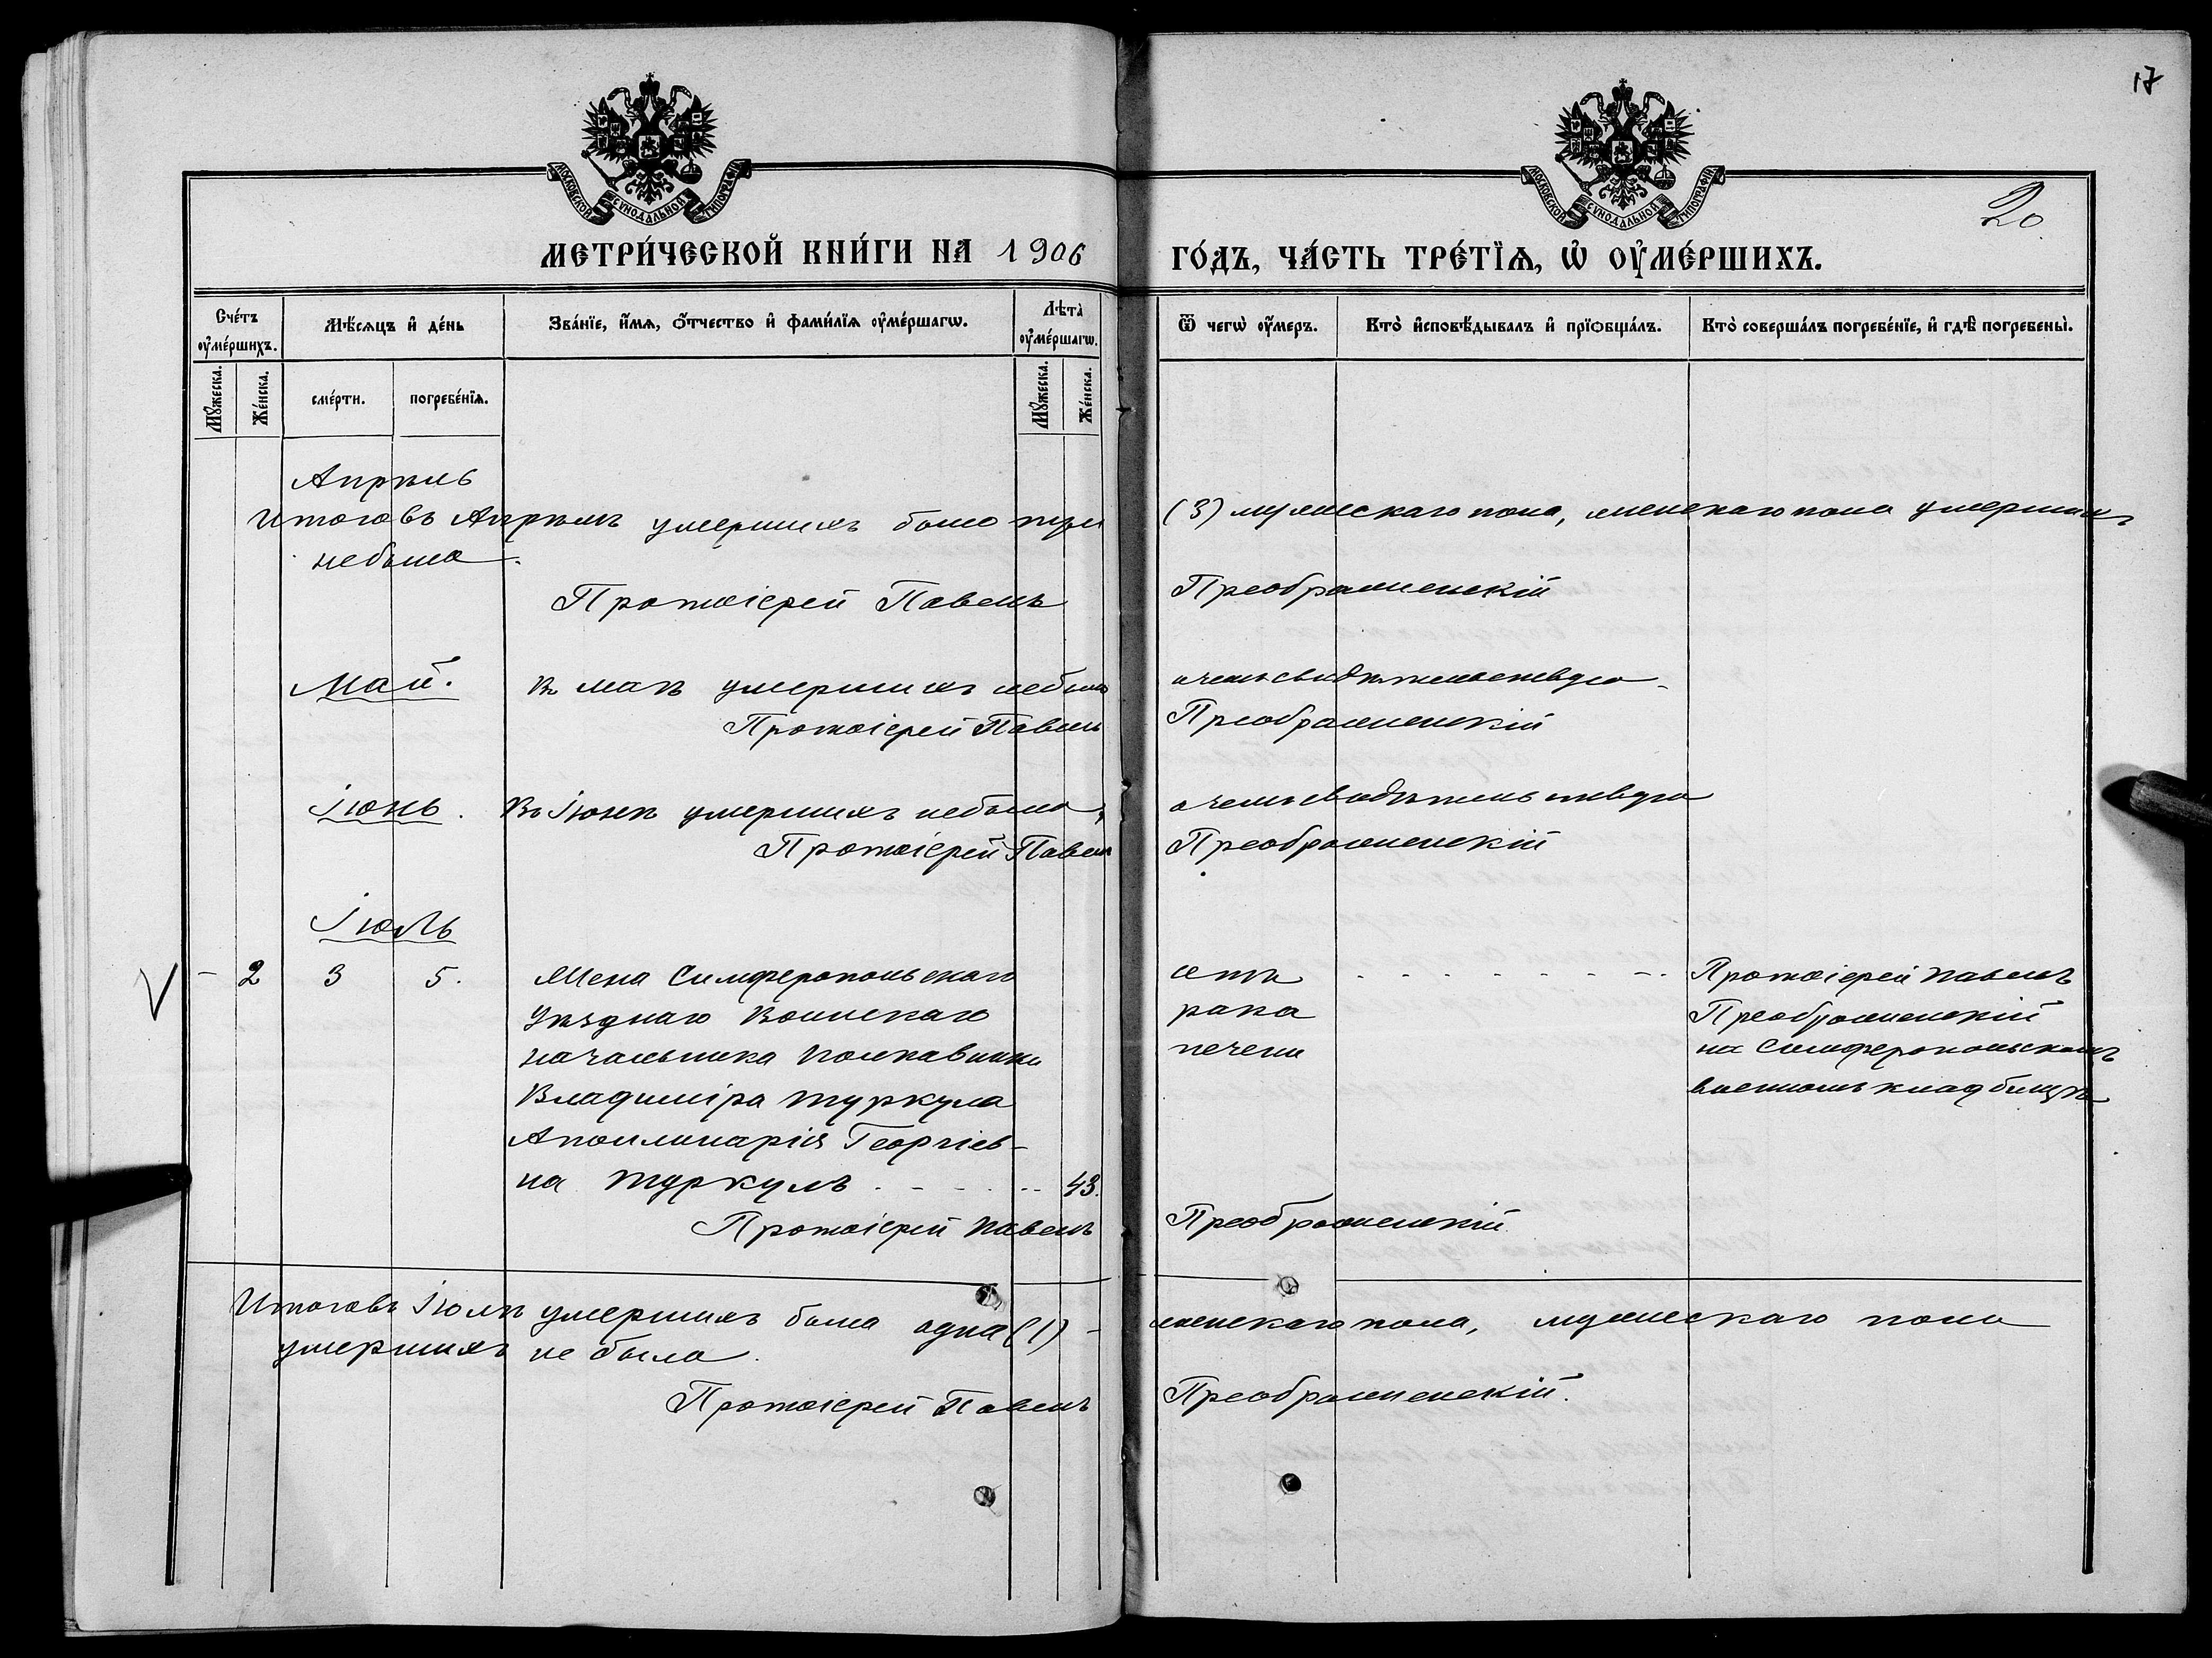 17
20
МОСКОВСКОЙ СѴНОДАЛЬНОЙ ТИПОГРАФІИ
МОСКОВСКОЙ СѴНОДАЛЬНОЙ ТИПОГРАФІИ
МЕТРИ́ЧЕСКОЙ КНИ́ГИ НА 1906 ГО́ДЪ, ЧА́СТЬ ТРЕ́ТЇѦ, Ѡ҆ ОУ҆МЕ́РШИХЪ.
Сче́тъ оу҆ме́ршихъ.
Мѣ́сяцъ и҆ де́нь
Зва́нїе, и҆́мѧ, ѻ҆́тчество и҆ фами́лїѧ оу҆ме́ршагѡ.
Лѣта̀ оу҆ме́ршагѡ.
Ѿ чегѡ̀ оу҆́меръ.
Кто̀ и҆сповѣ́дывалъ и҆ прїѡбща́лъ.
Кто̀ соверша́лъ погребе́нїе, и҆ гдѣ̀ погребены̀.
Мꙋ́жеска.
Же́нска.
сме́рти.
погребе́нїѧ.
Мꙋ́жеска.
Же́нска.
Апрѣль
Итого въ Апрѣлѣ умершихъ было три (3) мужескаго пола, женскаго пола умершихъ
небыло.
Протоіерей Павелъ Преображенскій
Май. въ маѣ умершихъ небыло о чемъ свидѣтельствую
Протоіерей Павелъ Преображенскій
Іюнь. Въ Іюнѣ умершихъ небыло, о чемъ свидѣтельствую
Протоіерей Павелъ Преображенскій
Іюль
- 2 3 5. Жена Симферопольскаго отъ - - - - - - - - Протоіерей Павелъ
Уѣзднаго Воинскаго рака Преображенскій
начальника Полковника печени на Симферопольскомъ
Владиміра Туркула военномъ кладбищѣ
Аполлинарія Георгіев-
на Туркулъ - - - - 43.
Протоіерей Павелъ Преображенскій
Итого въ Іюлѣ умершихъ была одна (1) - женскаго пола, мужескаго пола
умершихъ не было.
Протоіерей Павелъ Преображенскій.